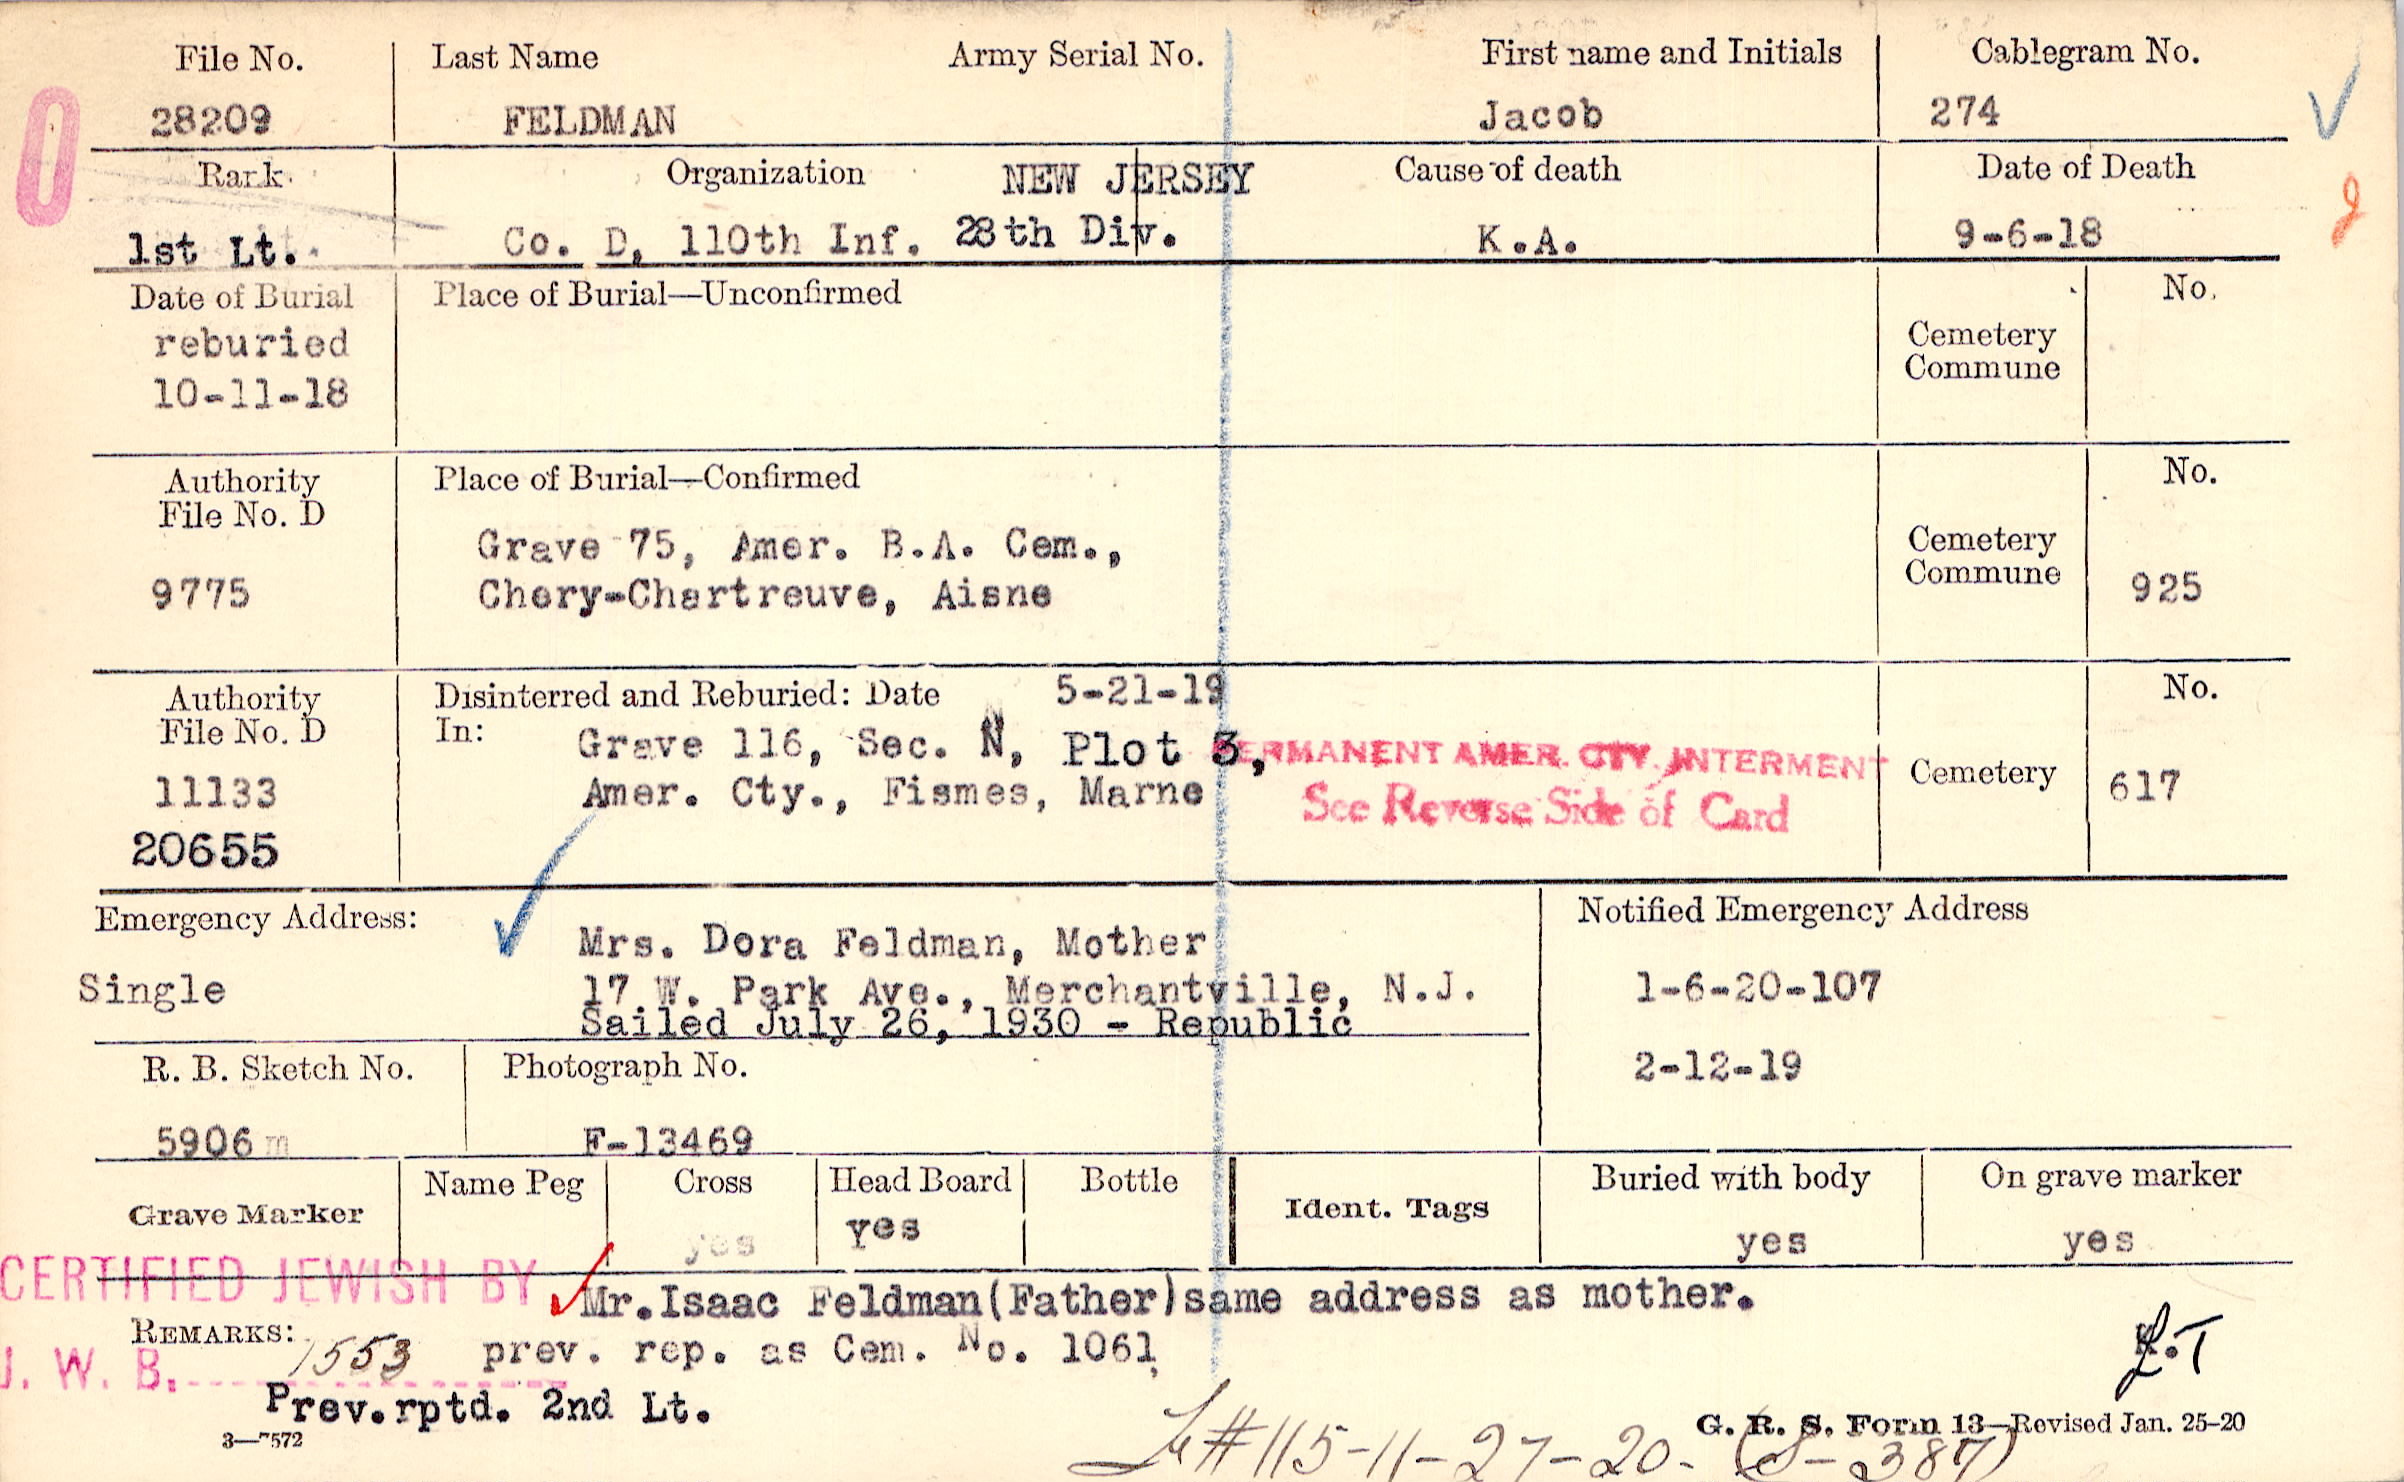 File No. Last Name Army Serial No. First name and Initials Cablegram No.
28209 FELDMAN Jacob 274
Rank Organization NEW JERSEY Cause of death Date of Death
1st Lt. Co. D, 110th Inf. 28th Div. K.A. 9-6-18
Date of Burial Place of Burial—Unconfirmed No.
reburied
10-11-18
Cemetery
Commune
Authority Place of Burial—Confirmed No.
File No. D
Grave 75, Amer. B.A. Cem., Cemetery
9775 Chery-Chartreuve, Aisne Commune 925
Authority Disinterred and Reburied: Date 5-21-19 No.
File No. D In: Grave 116, Sec. N, Plot 3,
PERMANENT AMER. CTY. INTERMENT
11133 Amer. Cty., Fismes, Marne Cemetery 617
See Reverse Side of Card
20655
Emergency Address: Notified Emergency Address
Mrs. Dora Feldman, Mother
Single 17 W. Park Ave., Merchantville, N.J. 1-6-20-107
Sailed July 26, 1930 - Republic
R. B. Sketch No. Photograph No. 2-12-19
5906m F-13469
Grave Marker Name Peg Cross Head Board Bottle Ident. Tags Buried with body On grave marker
yes yes yes yes
CERTIFIED JEWISH BY
Mr.Isaac Feldman(Father)same address as mother.
REMARKS: 1553 prev. rep. as Cem. No. 1061
J. W. B.
Prev.rptd. 2nd Lt.
3—7572
G. R. S. Form 13—Revised Jan. 25-20
#115-11-27-20- (S-387)